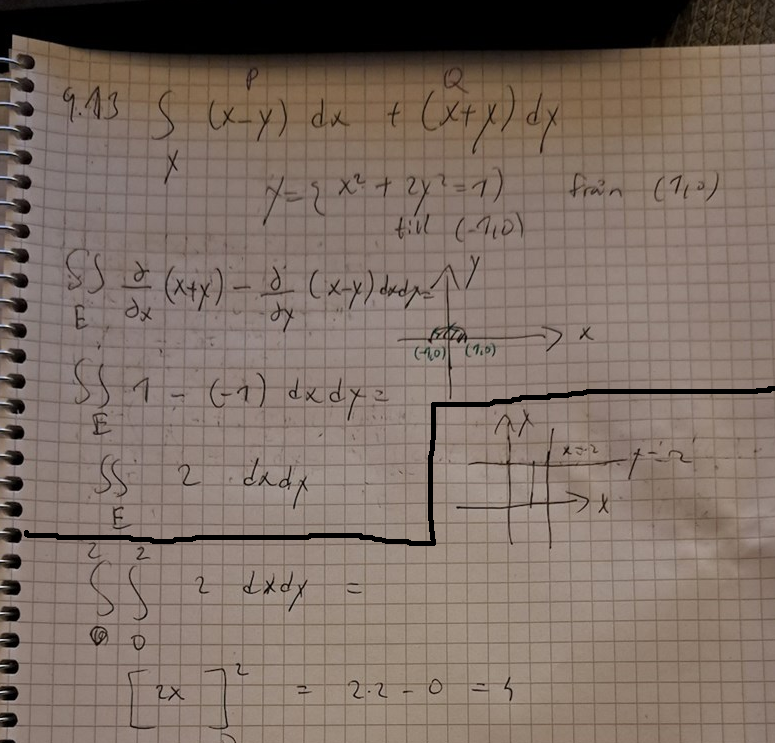 P Q
9.13 ∫ (x-y) dx + (x+y) dy
γ
γ = { x² + 2y² = 1) från (1,0)
till (-1,0)
∫∫ ∂/∂x (x+y) - ∂/∂y (x-y) dxdy =
E
y
x
(-1,0) (1,0)
∫∫ 1 - (-1) dxdy =
E
∫∫ 2 dxdy
E
y
x=2 y=2
x
2 2
∫ ∫ 2 dxdy =
0 0
[2x]² = 2·2 - 0 = 4